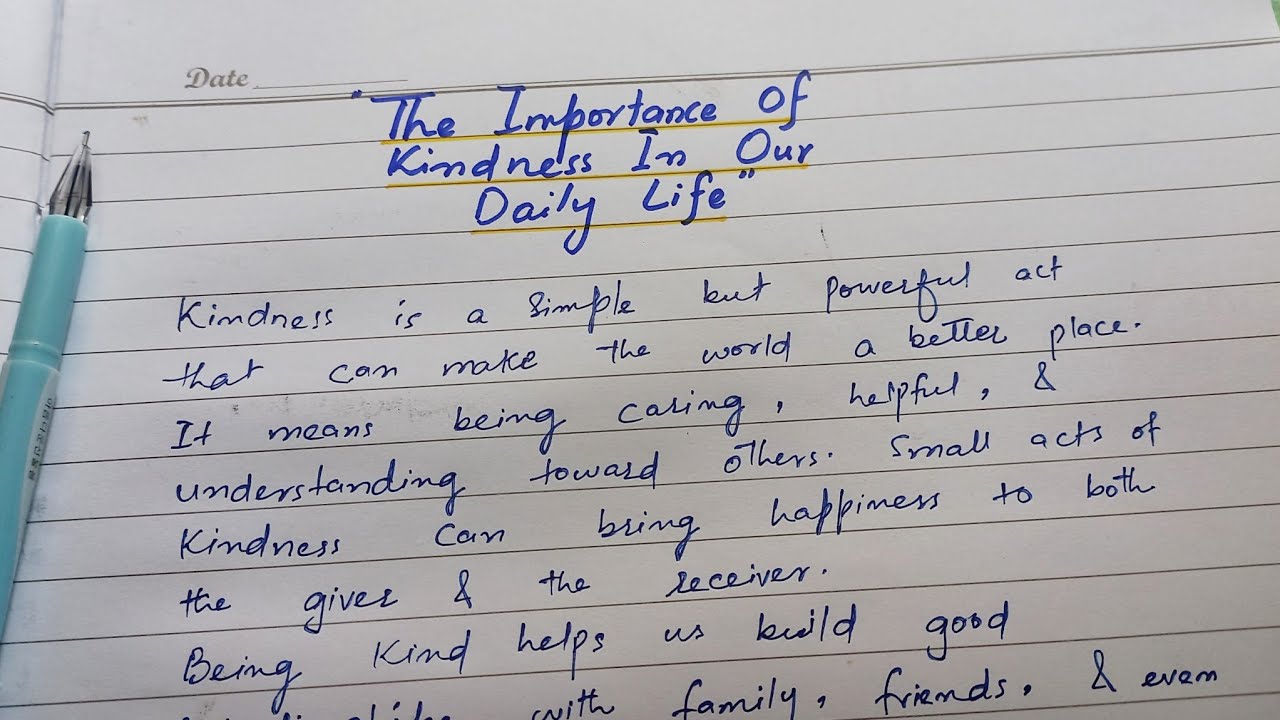 Date
"The Importance Of
Kindness In Our
Daily Life"
Kindness is a simple but powerful act
that can make the world a better place.
It means being caring, helpful, &
understanding toward others. Small acts of
Kindness can bring happiness to both
the giver & the receiver.
Being Kind helps us build good
with family, friends, & even